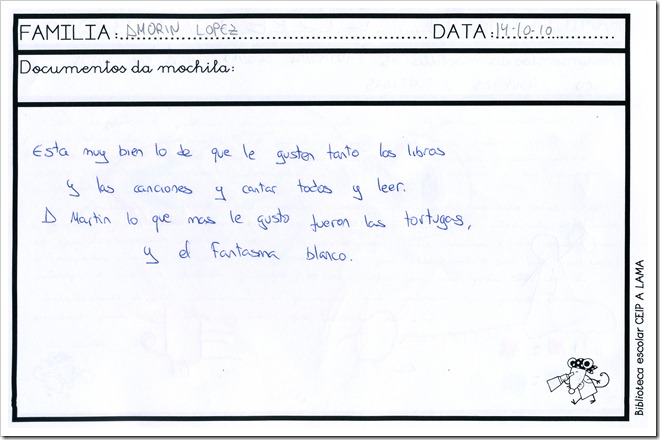 FAMILIA: AMORIN LOPEZ DATA: 14-10-10
Documentos da mochila:
Esta muy bien lo de que le gusten tanto los libros
y las canciones y cantar todos y leer.
A Martin lo que mas le gusto fueron las tortugas,
y el Fantasma blanco.
Biblioteca escolar CEIP A LAMA